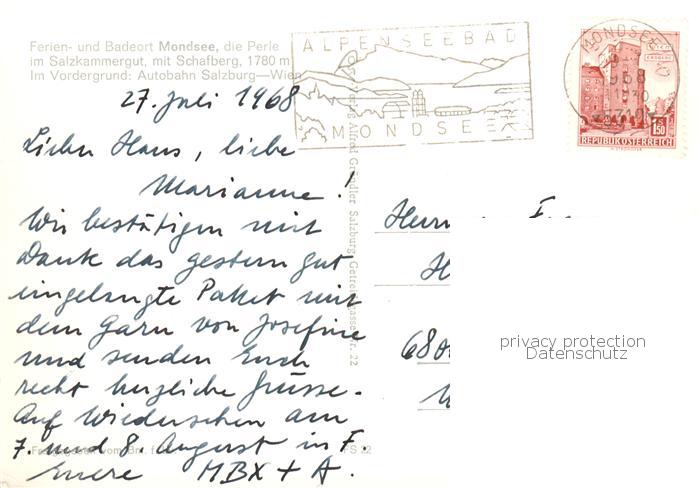 Ferien- und Badeort Mondsee, die Perle
im Salzkammergut, mit Schafberg, 1780 m
Im Vordergrund: Autobahn Salzburg—Wien
ALPENSEEBAD
MONDSEE
MONDSEE
REPUBLIK ÖSTERREICH
1.50
27. Juli 1968
Lieber Hans, liebe
Marianne!
Wir bestätigen mit
Dank das gestern gut
eingelangte Paket mit
dem Garn von Josefine
und senden Euch
recht herzliche Grüsse.
Auf Wiedersehen am
7. und 8. August in F.
Euere MBX + A.
Verlag Alfred Gründler Salzburg, Getreidegasse Nr. 22
Freigegeben vom
FS 22
Herrn
H
68
privacy protection
Datenschutz